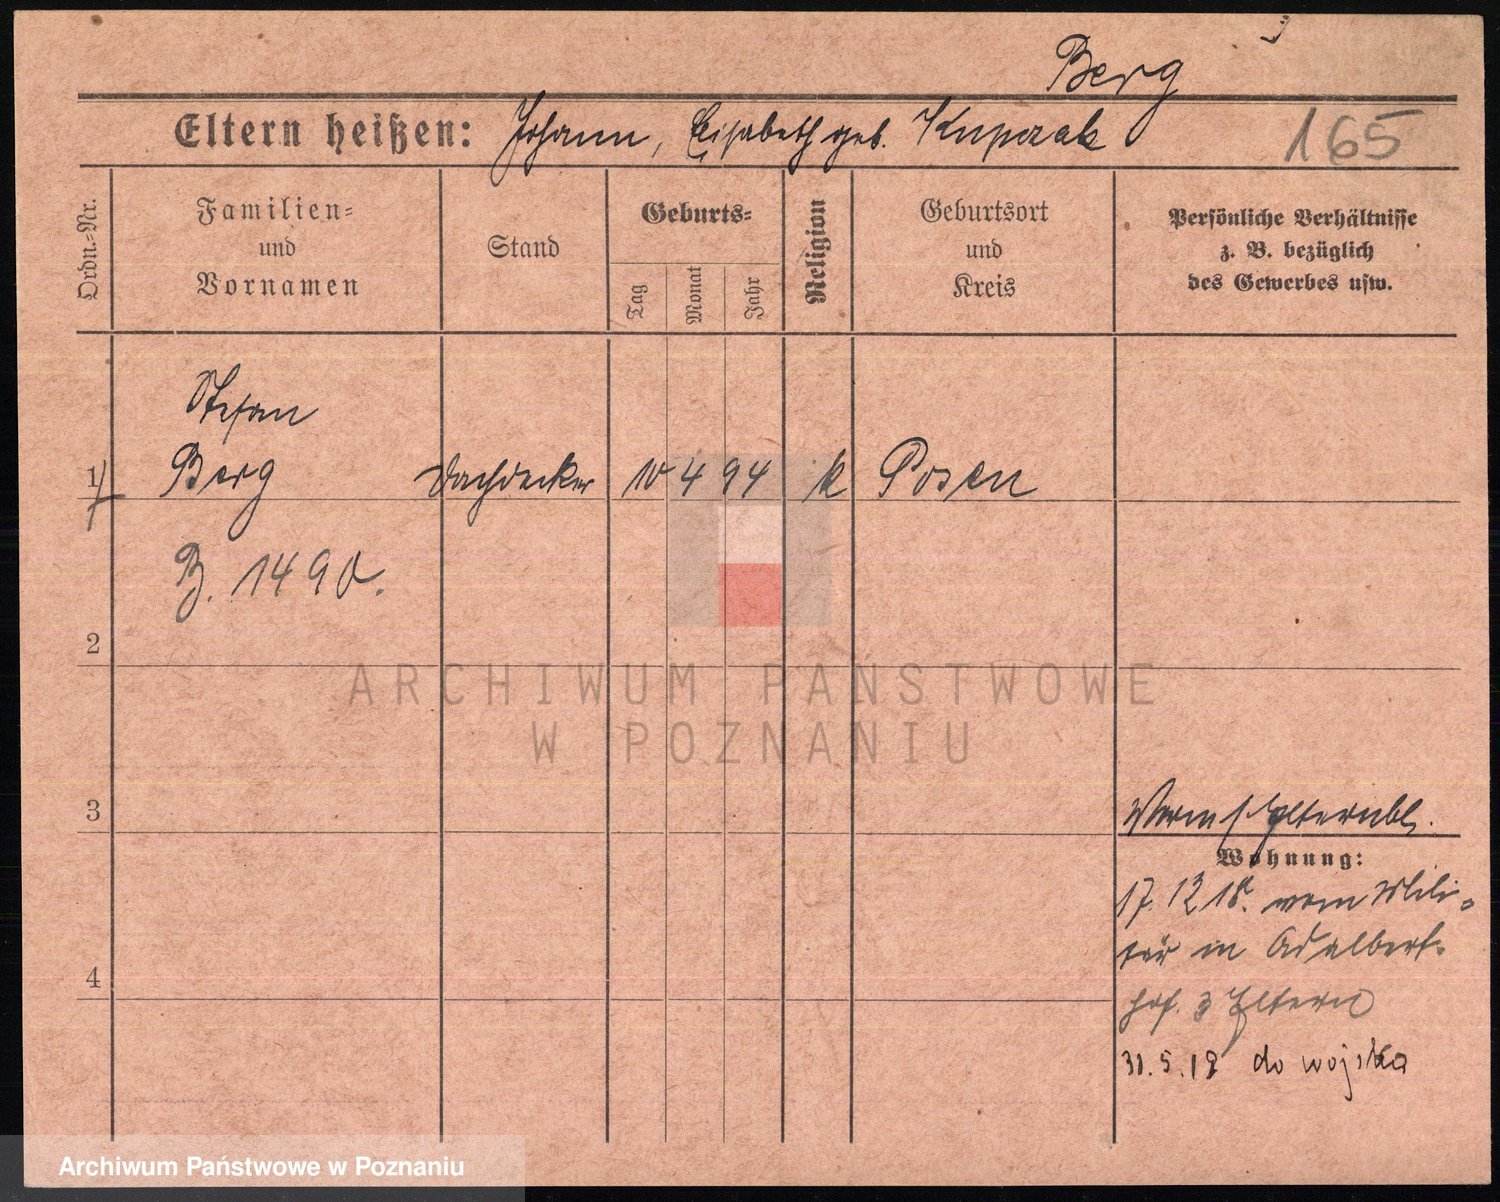 Berg
Eltern heißen: Johann, Elisabeth geb. Kupczak
165
Ordn.-Nr.
Familien-
und
Vornamen
Stand
Geburts-
Tag
Monat
Jahr
Religion
Geburtsort
und
Kreis
Persönliche Verhältnisse
z. B. bezüglich
des Gewerbes usw.
Stefan
1 Berg Dachdecker 10 4 94 k Posen
B. 1490.
2
ARCHIWUM PAŃSTWOWE
W POZNANIU
3
Elternbl.
Wohnung:
17.12.18. vom Mili-
tär in Adalbert-
4
hof. 3 Eltern
31.5.19 do wojska
Archiwum Państwowe w Poznaniu